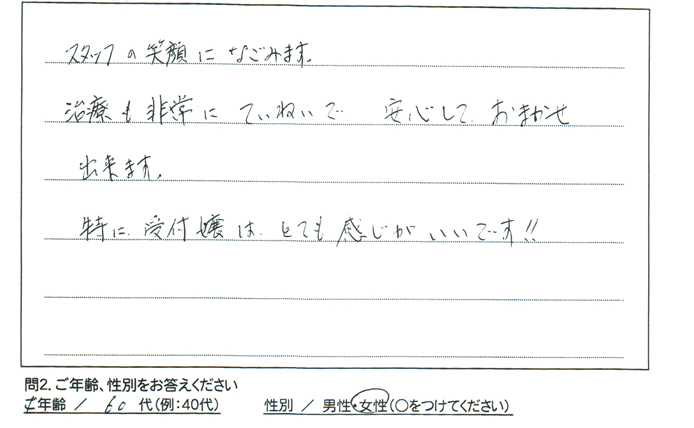 スタッフの笑顔になごみます。
治療も非常にていねいで 安心して おまかせ
出来ます。
特に 受付嬢は とても 感じが いいです!!
問2. ご年齢、性別をお答えください
年齢 / 60 代(例:40代) 性別 / 男性・女性(○をつけてください)